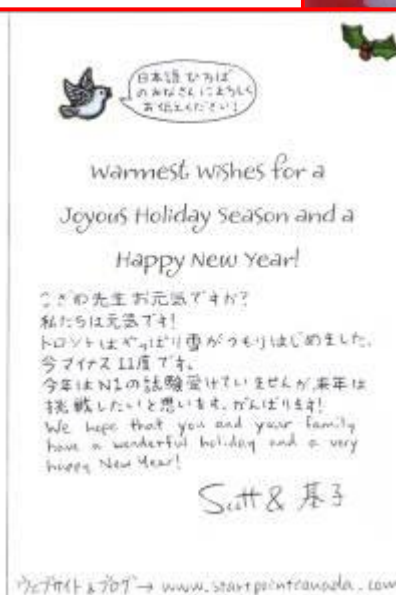 日本語ひろば
のみなさんによろしく
お伝えください!
Warmest Wishes for a
Joyous Holiday Season and a
Happy New Year!
先生お元気ですか?
私たちは元気です!
トロントはやっぱり雪がつもりはじめました。
今マイナス11度です。
今年はN1の試験受けていませんが、来年は
挑戦したいと思います。がんばります!
We hope that you and your family
have a wonderful holiday and a very
happy New Year!
Scott & 基子
ウェブサイト&ブログ→ www.startpointcanada.com